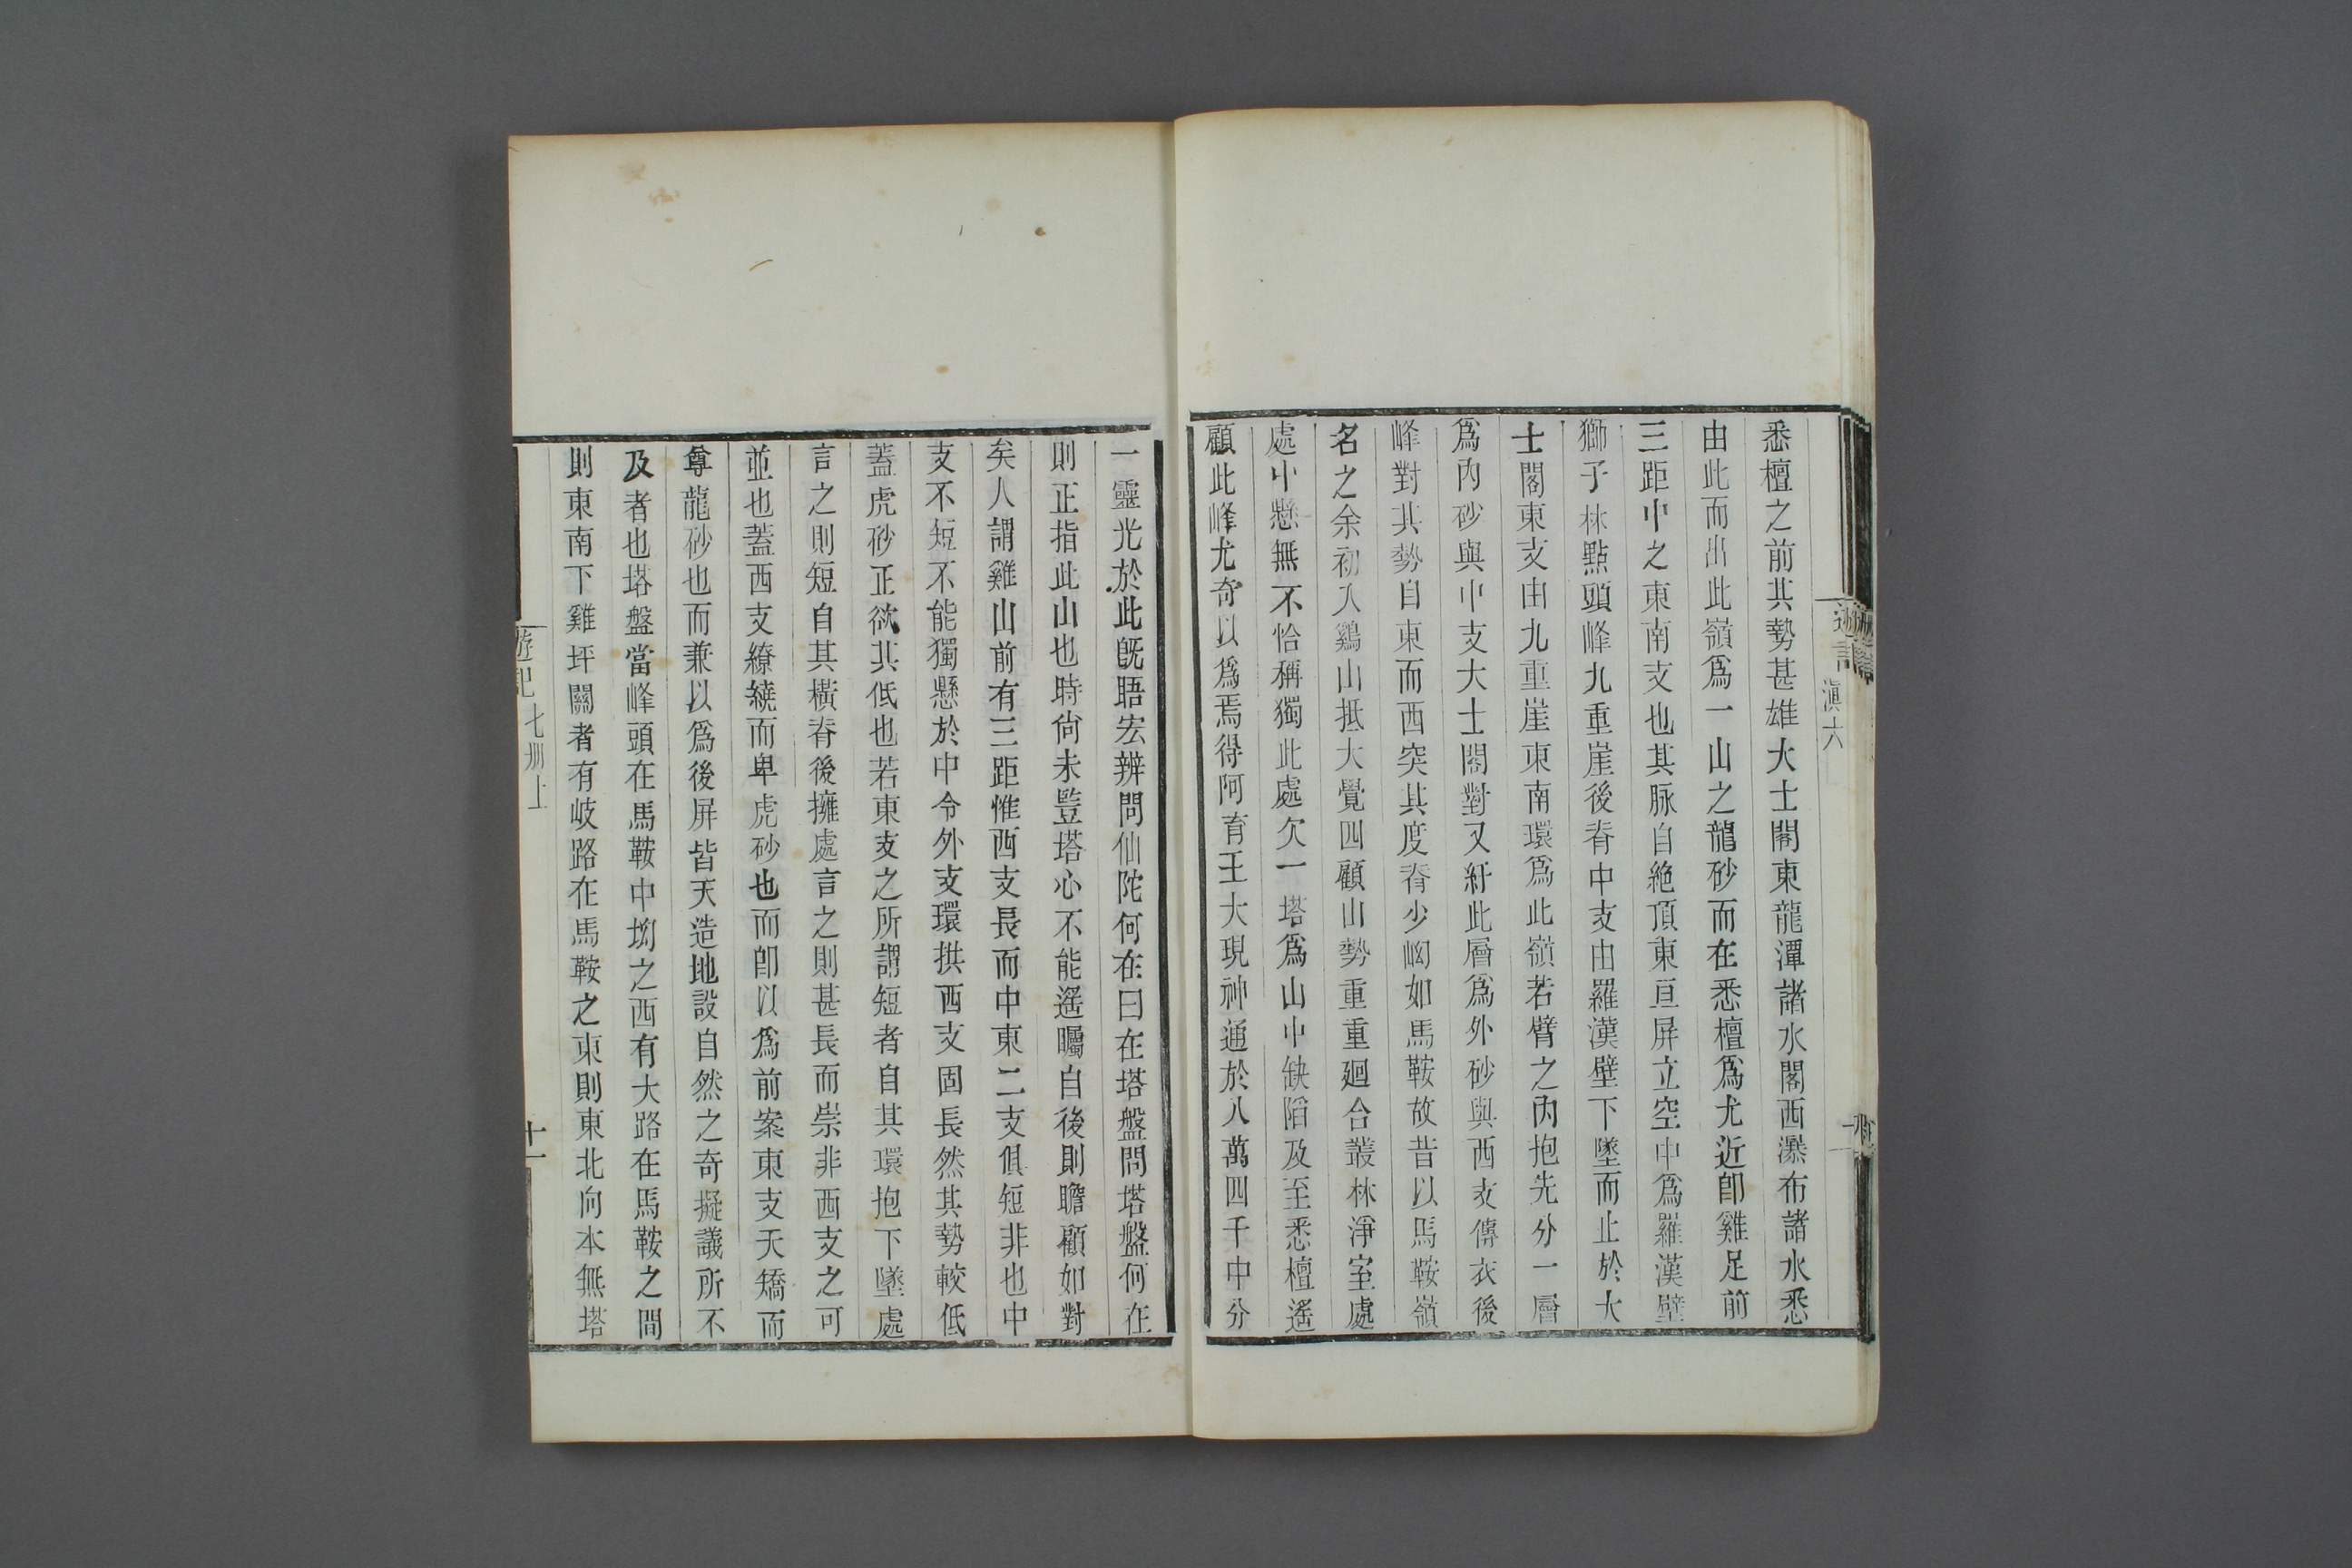 悉檀之前其勢甚雄大士閣東龍潭諸水閣西瀑布諸水悉
由此而出此嶺爲一山之龍砂而在悉檀爲尤近卽雞足前
三距中之東南支也其脉自絶頂東亘屏立空中爲羅漢壁
獅子林點頭峰九重崖後脊中支由羅漢壁下墜而止於大
士閣東支由九重崖東南環爲此嶺若臂之內抱先分一層
爲內砂與中支大士閣對又紆此層爲外砂與西支傳衣後
峰對其勢自東而西突其度脊少㘭如馬鞍故昔以馬鞍嶺
名之余初入鷄山抵大覺四顧山勢重重廻合叢林淨室處
處中懸無不恰稱獨此處欠一塔爲山中缺陷及至悉檀遙
顧此峰尤奇以爲焉得阿育王大現神通於八萬四千中分
一靈光於此旣晤宏辨問仙陀何在曰在塔盤問塔盤何在
則正指此山也時尙未豎塔心不能遙矚自後則瞻顧如對
矣人謂雞山前有三距惟西支長而中東二支俱短非也中
支不短不能獨懸於中令外支環拱西支固長然其勢較低
蓋虎砂正欲其低也若東支之所謂短者自其環抱下墜處
言之則短自其橫脊後擁處言之則甚長而崇非西支之可
並也蓋西支繚繞而卑虎砂也而卽以爲前案東支天矯而
尊龍砂也而兼以爲後屏皆天造地設自然之奇擬議所不
及者也塔盤當峰頭在馬鞍中坳之西有大路在馬鞍之間
則東南下雞坪關者有岐路在馬鞍之東則東北向本無塔
遊記
滇六
遊記
七册上
十一